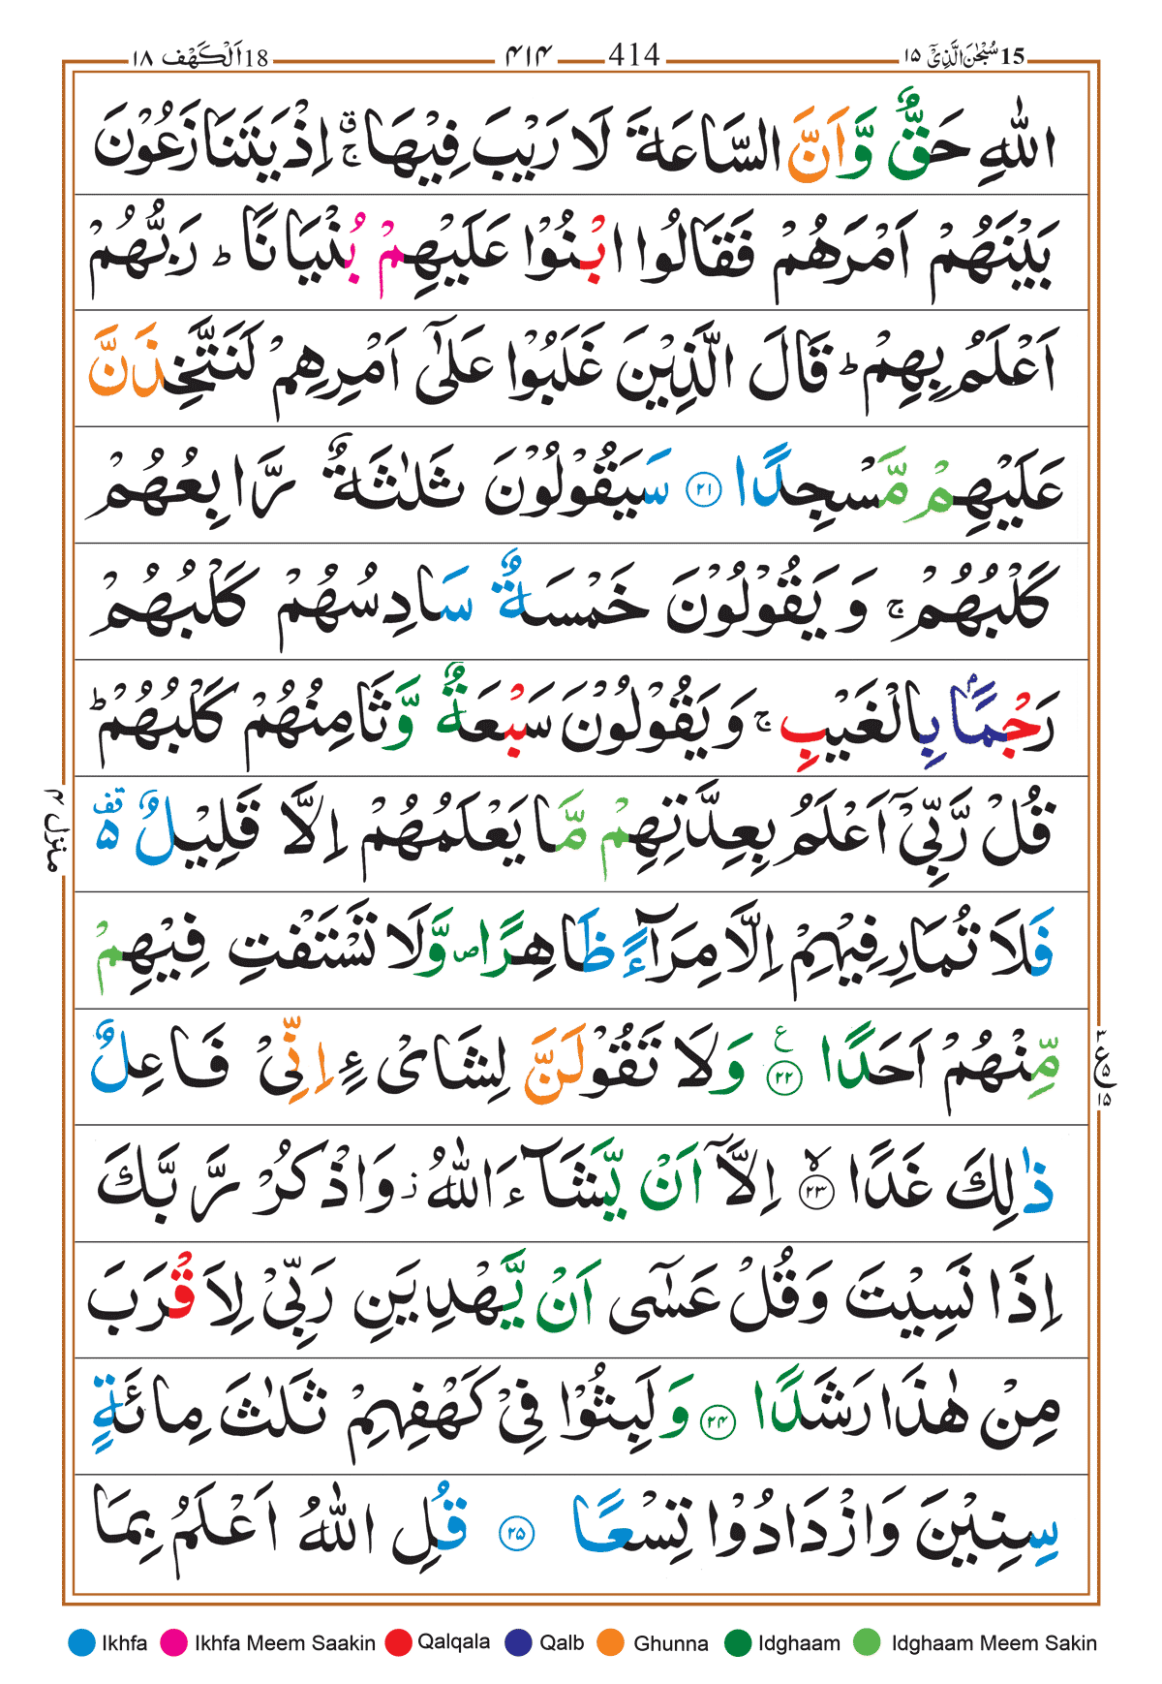 18 اَلْكَهْف ١٨
414 ۴۱۴
15 سُبْحٰنَ الَّذِىْٓ ١٥
اللّٰهِ حَقٌّ وَّاَنَّ السَّاعَةَ لَا رَيْبَ فِيْهَا ۚۗ اِذْ يَتَنَازَعُوْنَ
بَيْنَهُمْ اَمْرَهُمْ فَقَالُوا ابْنُوْا عَلَيْهِمْ بُنْيَانًا ؕ رَبُّهُمْ
اَعْلَمُ بِهِمْ ؕ قَالَ الَّذِيْنَ غَلَبُوْا عَلٰٓى اَمْرِهِمْ لَنَتَّخِذَنَّ
عَلَيْهِمْ مَّسْجِدًا ۲۱ سَيَقُوْلُوْنَ ثَلٰثَةٌ رَّابِعُهُمْ
كَلْبُهُمْ ۚ وَيَقُوْلُوْنَ خَمْسَةٌ سَادِسُهُمْ كَلْبُهُمْ
رَجْمًاۢ بِالْغَيْبِ ۚ وَيَقُوْلُوْنَ سَبْعَةٌ وَّثَامِنُهُمْ كَلْبُهُمْ ؕ
قُلْ رَّبِّىْٓ اَعْلَمُ بِعِدَّتِهِمْ مَّا يَعْلَمُهُمْ اِلَّا قَلِيْلٌ قف ۵
فَلَا تُمَارِ فِيْهِمْ اِلَّا مِرَآءً ظَاهِرًا ص وَّلَا تَسْتَفْتِ فِيْهِمْ
مِّنْهُمْ اَحَدًا ع ۲۲ وَلَا تَقُوْلَنَّ لِشَاىْءٍ اِنِّىْ فَاعِلٌ
ذٰلِكَ غَدًا ۙ ۲۳ اِلَّآ اَنْ يَّشَآءَ اللّٰهُ ز وَاذْكُرْ رَّبَّكَ
اِذَا نَسِيْتَ وَقُلْ عَسٰٓى اَنْ يَّهْدِيَنِ رَبِّىْ لِاَقْرَبَ
مِنْ هٰذَا رَشَدًا ۲۴ وَلَبِثُوْا فِىْ كَهْفِهِمْ ثَلٰثَ مِائَةٍ
سِنِيْنَ وَازْدَادُوْا تِسْعًا ۲۵ قُلِ اللّٰهُ اَعْلَمُ بِمَا
منزل ۴
۳ ع ۵ ۱۵
Ikhfa Ikhfa Meem Saakin Qalqala Qalb Ghunna Idghaam Idghaam Meem Sakin